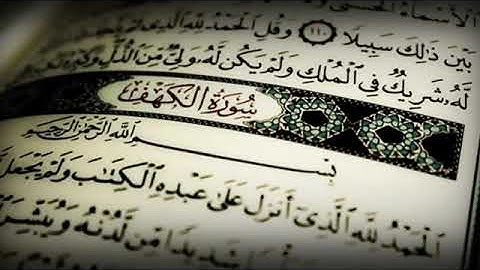 ٱلْأَسْمَآءُ ٱلْحُسْنَىٰ
بَيْنَ ذَٰلِكَ سَبِيلًا ١١٠ وَقُلِ ٱلْحَمْدُ لِلَّهِ ٱلَّذِى
لَّهُۥ شَرِيكٌ فِى ٱلْمُلْكِ وَلَمْ يَكُن لَّهُۥ وَلِىٌّ مِّنَ ٱلذُّلِّ وَكَبِّرْهُ
سُورَةُ الكَهْفِ
بِسْمِ ٱللَّهِ ٱلرَّحْمَٰنِ ٱلرَّحِيمِ
ٱلْحَمْدُ لِلَّهِ ٱلَّذِىٓ أَنزَلَ عَلَىٰ عَبْدِهِ ٱلْكِتَٰبَ وَلَمْ يَجْعَل
شَدِيدًا مِّن لَّدُنْهُ وَيُبَشِّرَ